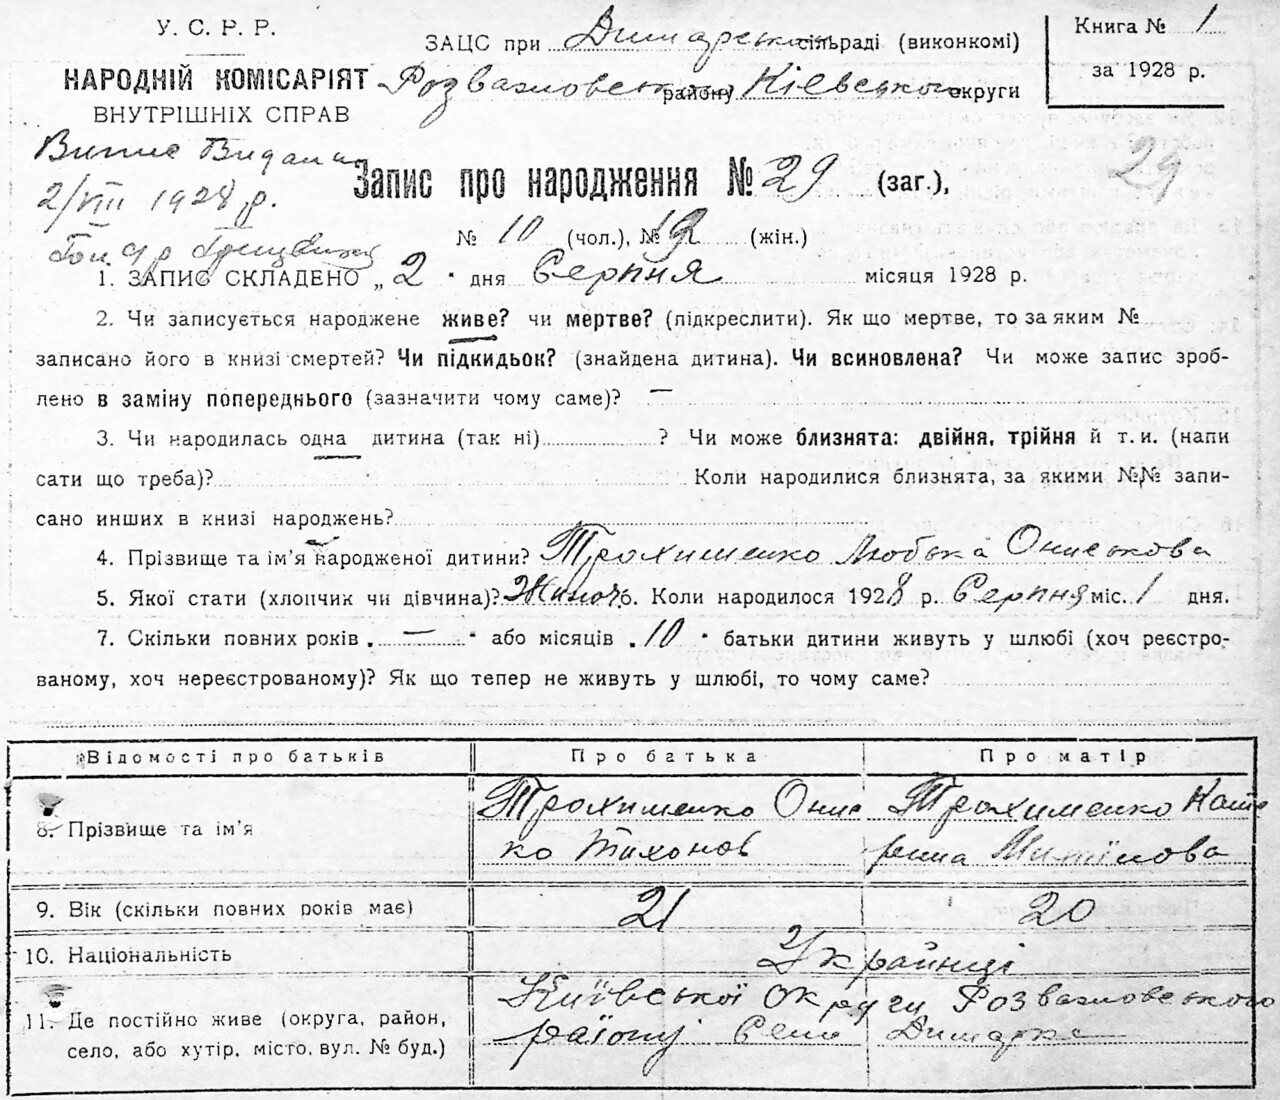 У. С. Р. Р.
НАРОДНІЙ КОМІСАРІЯТ
ВНУТРІШНІХ СПРАВ
ЗАЦС при Димарській сільраді (виконкомі)
Розважовського району Київського округи
Книга № 1
за 1928 р.
2/VIII 1928 р.
Запис про народження № 29 (заг.),
29
№ 10 (чол.), № 19 (жін.)
1. ЗАПИС СКЛАДЕНО „ 2 " дня Серпня місяця 1928 р.
2. Чи записується народжене живе? чи мертве? (підкреслити). Як що мертве, то за яким №
записано його в книзі смертей? Чи підкидьок? (знайдена дитина). Чи всиновлена? Чи може запис зроб-
лено в заміну попереднього (зазначити чому саме)? —
3. Чи народилась одна дитина (так ні) ? Чи може близнята: двійня, трійня й т. и. (напи
сати що треба)? Коли народилися близнята, за якими №№ запи-
сано инших в книзі народжень?
4. Прізвище та ім'я народженої дитини? Трохименко Любька Ониськова
5. Якої стати (хлопчик чи дівчина)? Жиноч 6. Коли народилося 1928 р. Серпня міс. 1 дня.
7. Скільки повних років „ — " або місяців „ 10 " батьки дитини живуть у шлюбі (хоч реєстро-
ваному, хоч нереєстрованому)? Як що тепер не живуть у шлюбі, то чому саме?
Відомості про батьків Про батька Про матір
8. Прізвище та ім'я Трохименко Онис Трохименко Кате
ко Тихонов рина
9. Вік (скільки повних років має) 21 20
10. Національність Українці
11. Де постійно живе (округа, район, Київської Округи Розважовського
село, або хутір, місто, вул. № буд.) району Село Димарка